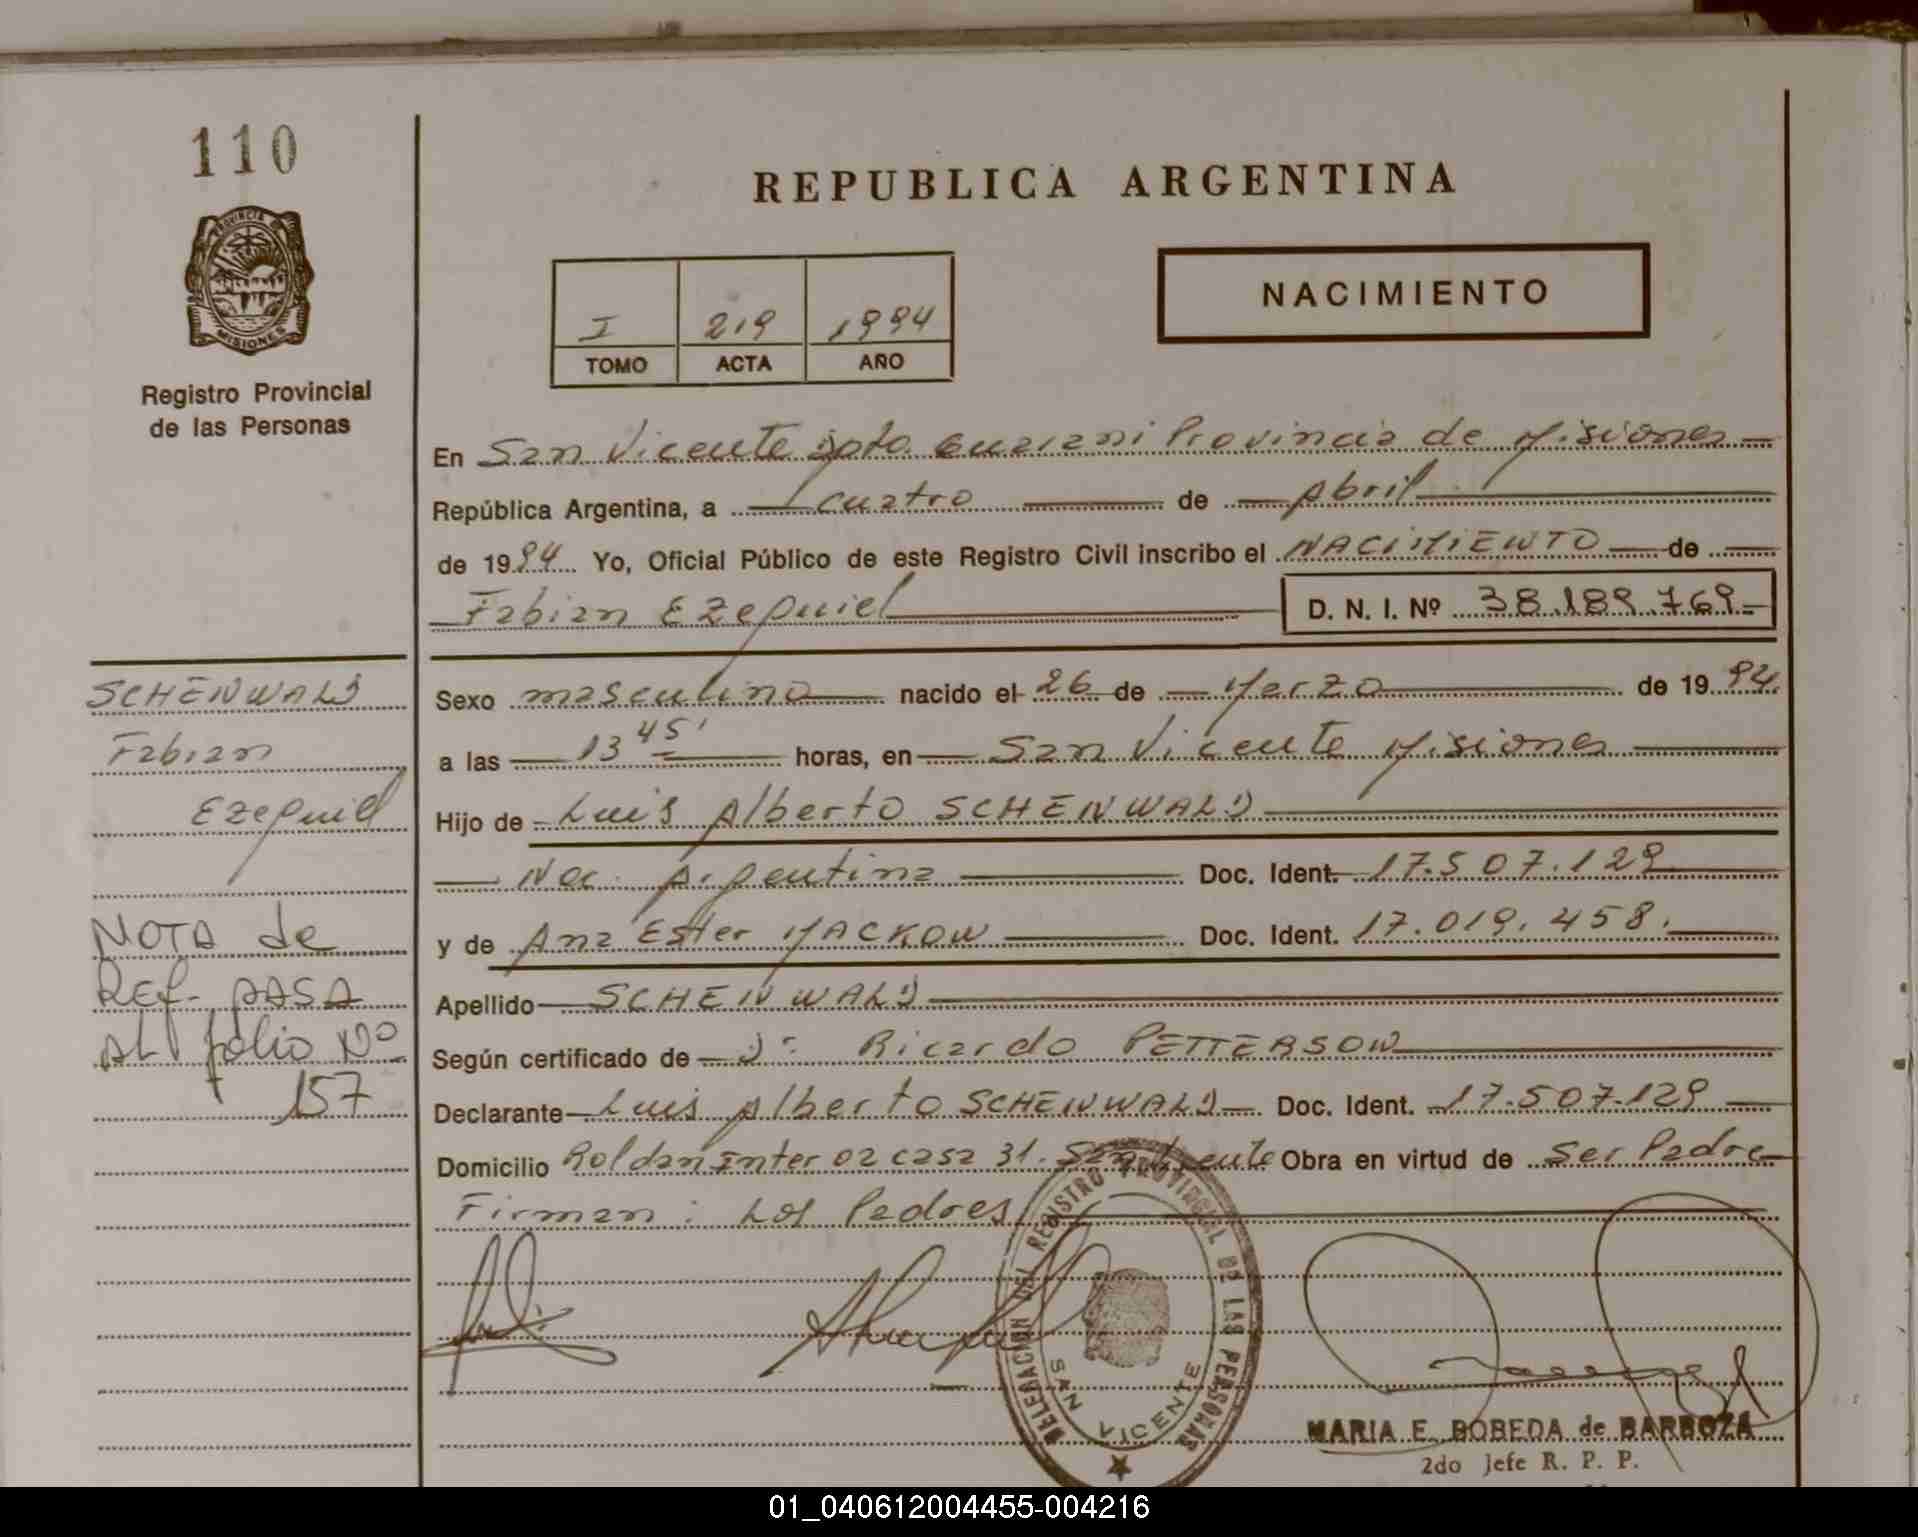 110
REPUBLICA ARGENTINA
PROVINCIA DE
MISIONES
Registro Provincial
de las Personas
NACIMIENTO
I 219 1994
TOMO ACTA AÑO
En San Vicente Dpto. Guarani Provincia de Misiones
República Argentina, a cuatro de Abril
de 1994 Yo, Oficial Público de este Registro Civil inscribo el NACIMIENTO de
Fabian Ezequiel D. N. I. Nº 38.189.769
Sexo masculino nacido el 26 de Marzo de 1994
a las 13 45' horas, en San Vicente Misiones
Hijo de Luis Alberto SCHENWALD
Nac. Argentina Doc. Ident. 17.507.129
y de Ana Ester MACKOW Doc. Ident. 17.019.458.
Apellido SCHENWALD
Según certificado de Dr. Ricardo PETTERSON
Declarante Luis Alberto SCHENWALD Doc. Ident. 17.507.129
Domicilio Roldan Inter 02 casa 31. San Vicente Obra en virtud de Ser Padre
Firman: Los Padres
SCHENWALD
Fabian
Ezequiel
NOTA de
REF. PASA
AL folio Nº
157
DELEGACION DEL REGISTRO PROVINCIAL DE LAS PERSONAS
SAN VICENTE
MARIA E. BOBEDA de BARBOZA
2do Jefe R. P. P.
01_040612004455-004216